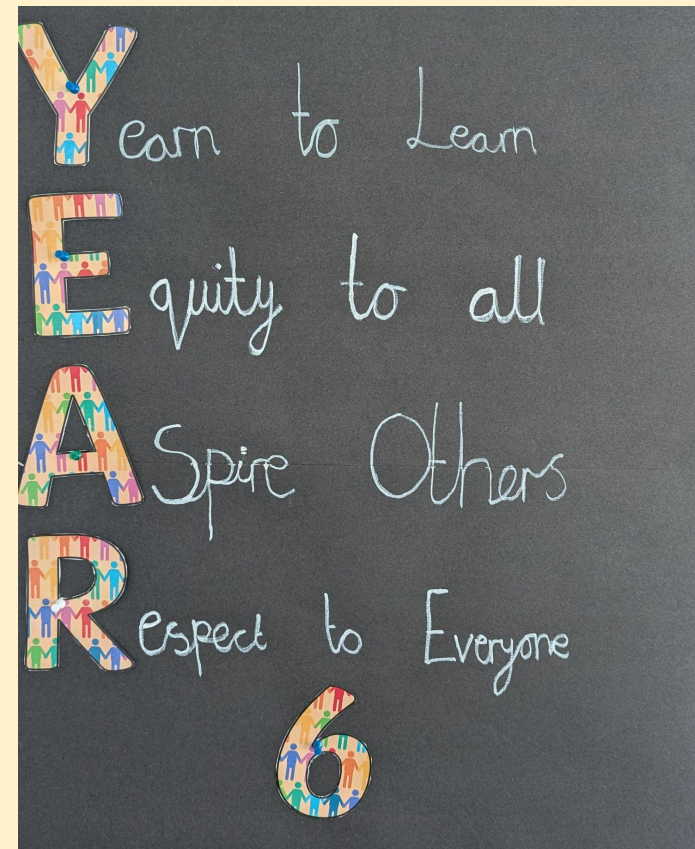 Yearn to Learn
Equity to all
ASpire Others
Respect to Everyone
6